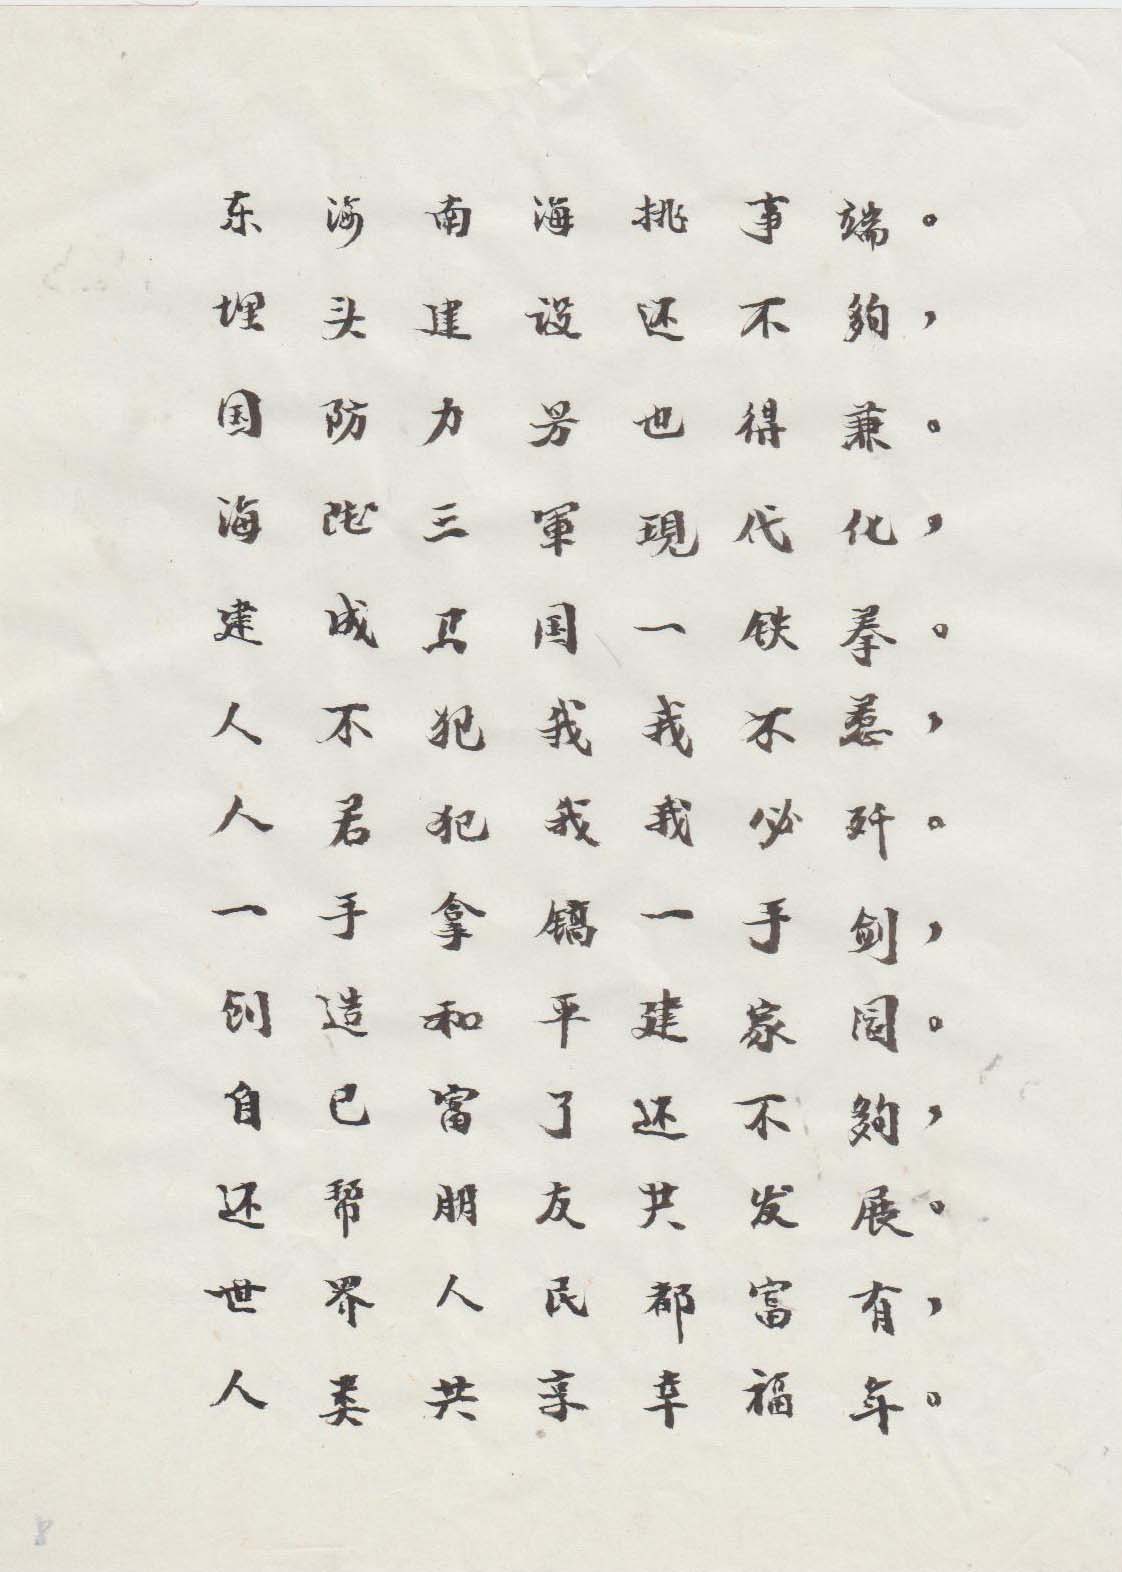 东海南海挑事端。
埋头建设还不夠，
国防力另也得兼。
海陆三軍現代化，
建成卫国一铁拳。
人不犯我我不惹，
人若犯我我必歼。
一手拿镐一手剑，
创造和平建家园。
自己富了还不夠，
还帮朋友共发展。
世界人民都富有，
人类共享幸福年。
8